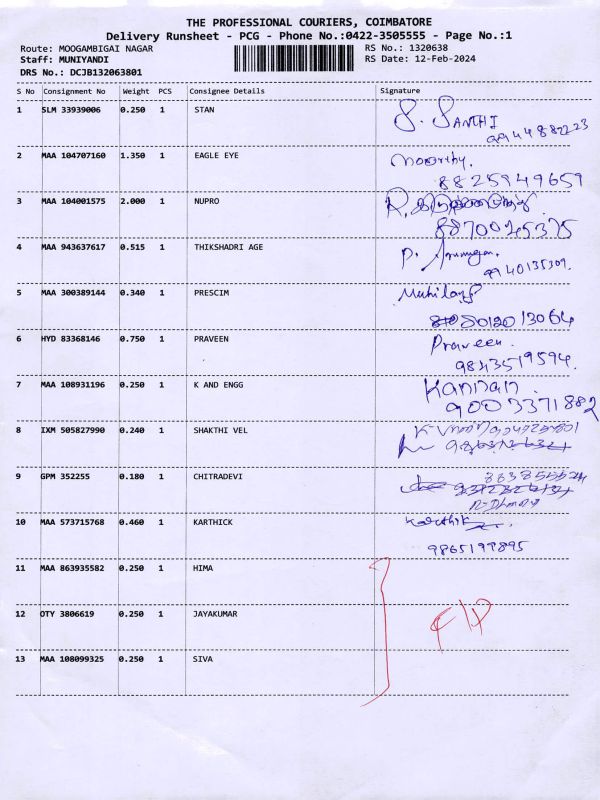 THE PROFESSIONAL COURIERS, COIMBATORE
Delivery Runsheet - PCG - Phone No.:0422-3505555 - Page No.:1
Route: MOOGAMBIGAI NAGAR RS No.: 1320638
Staff: MUNIYANDI RS Date: 12-Feb-2024
DRS No.: DCJB132063801
S No Consignment No Weight PCS Consignee Details Signature
1 SLM 33939006 0.250 1 STAN S. SANTHI
2 MAA 104707160 1.350 1 EAGLE EYE Moorthy.
8825949659
3 MAA 104001575 2.000 1 NUPRO
4 MAA 943637617 0.515 1 THIKSHADRI AGE P. Arumugam.
9940135309.
5 MAA 300389144 0.340 1 PRESCIM Mukilan
8012013064
6 HYD 83368146 0.750 1 PRAVEEN Praveen.
9843519594.
7 MAA 108931196 0.250 1 K AND ENGG Kannan.
9003371882
8 IXM 505827990 0.240 1 SHAKTHI VEL
9 GPM 352255 0.180 1 CHITRADEVI
10 MAA 573715768 0.460 1 KARTHICK Karthik
9865199895
11 MAA 863935582 0.250 1 HIMA
12 OTY 3806619 0.250 1 JAYAKUMAR
13 MAA 108099325 0.250 1 SIVA